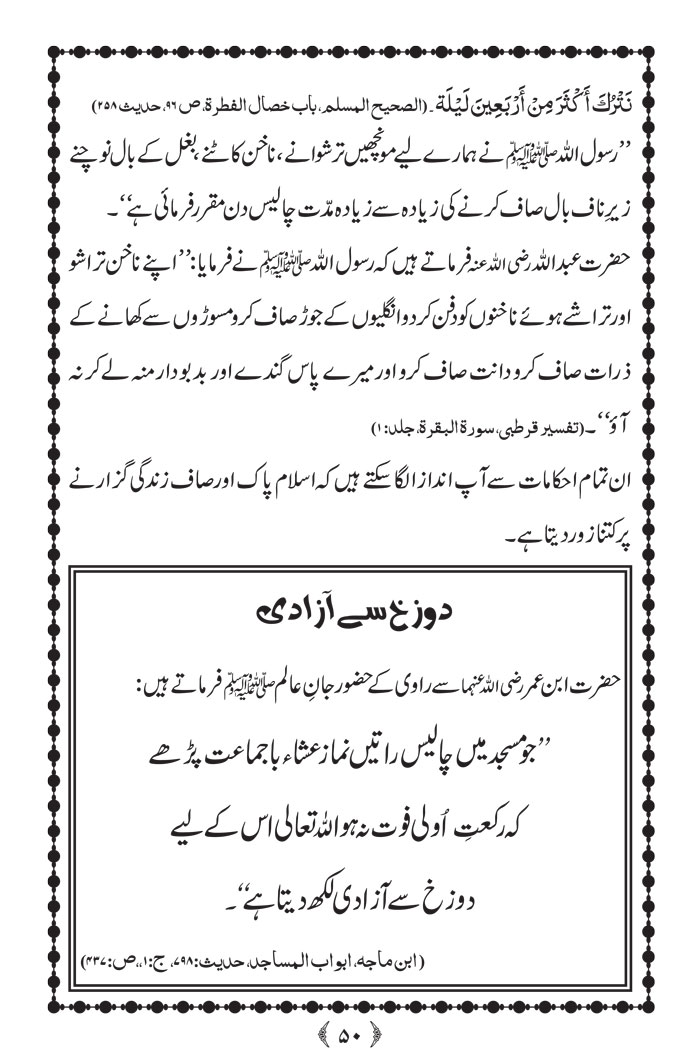 نَتْرُكَ أَكْثَرَ مِنْ أَرْبَعِينَ لَيْلَة۔ (الصحیح المسلم، باب خصال الفطرة، ص ۹۶، حدیث ۲۵۸)
’’رسول اللہ ﷺ نے ہمارے لیے مونچھیں ترشوانے، ناخن کاٹنے، بغل کے بال نوچنے
زیرِ ناف بال صاف کرنے کی زیادہ سے زیادہ مدّت چالیس دن مقرر فرمائی ہے‘‘۔
حضرت عبداللہ رضی اللہ عنہ فرماتے ہیں کہ رسول اللہ ﷺ نے فرمایا: ’’اپنے ناخن تراشو
اور تراشے ہوئے ناخنوں کو دفن کردو انگلیوں کے جوڑ صاف کرو مسوڑوں سے کھانے کے
ذرات صاف کرو دانت صاف کرو اور میرے پاس گندے اور بدبودار منہ لے کر نہ
آؤ‘‘۔ (تفسیر قرطبی، سورة البقرة، جلد: ۱)
ان تمام احکامات سے آپ اندازا لگا سکتے ہیں کہ اسلام پاک اور صاف زندگی گزارنے
پر کتنا زور دیتا ہے۔
دوزخ سے آزادی
حضرت ابن عمر رضی اللہ عنہما سے راوی کے حضور جانِ عالم ﷺ فرماتے ہیں:
’’جو مسجد میں چالیس راتیں نماز عشاء باجماعت پڑھے
کہ رکعتِ اُولی فوت نہ ہو اللہ تعالی اس کے لیے
دوزخ سے آزادی لکھ دیتا ہے‘‘۔
(ابن ماجه، ابواب المساجد، حدیث: ۷۹۸، ج: ۱،، ص: ۴۳۷)
﴿ ۵۰ ﴾